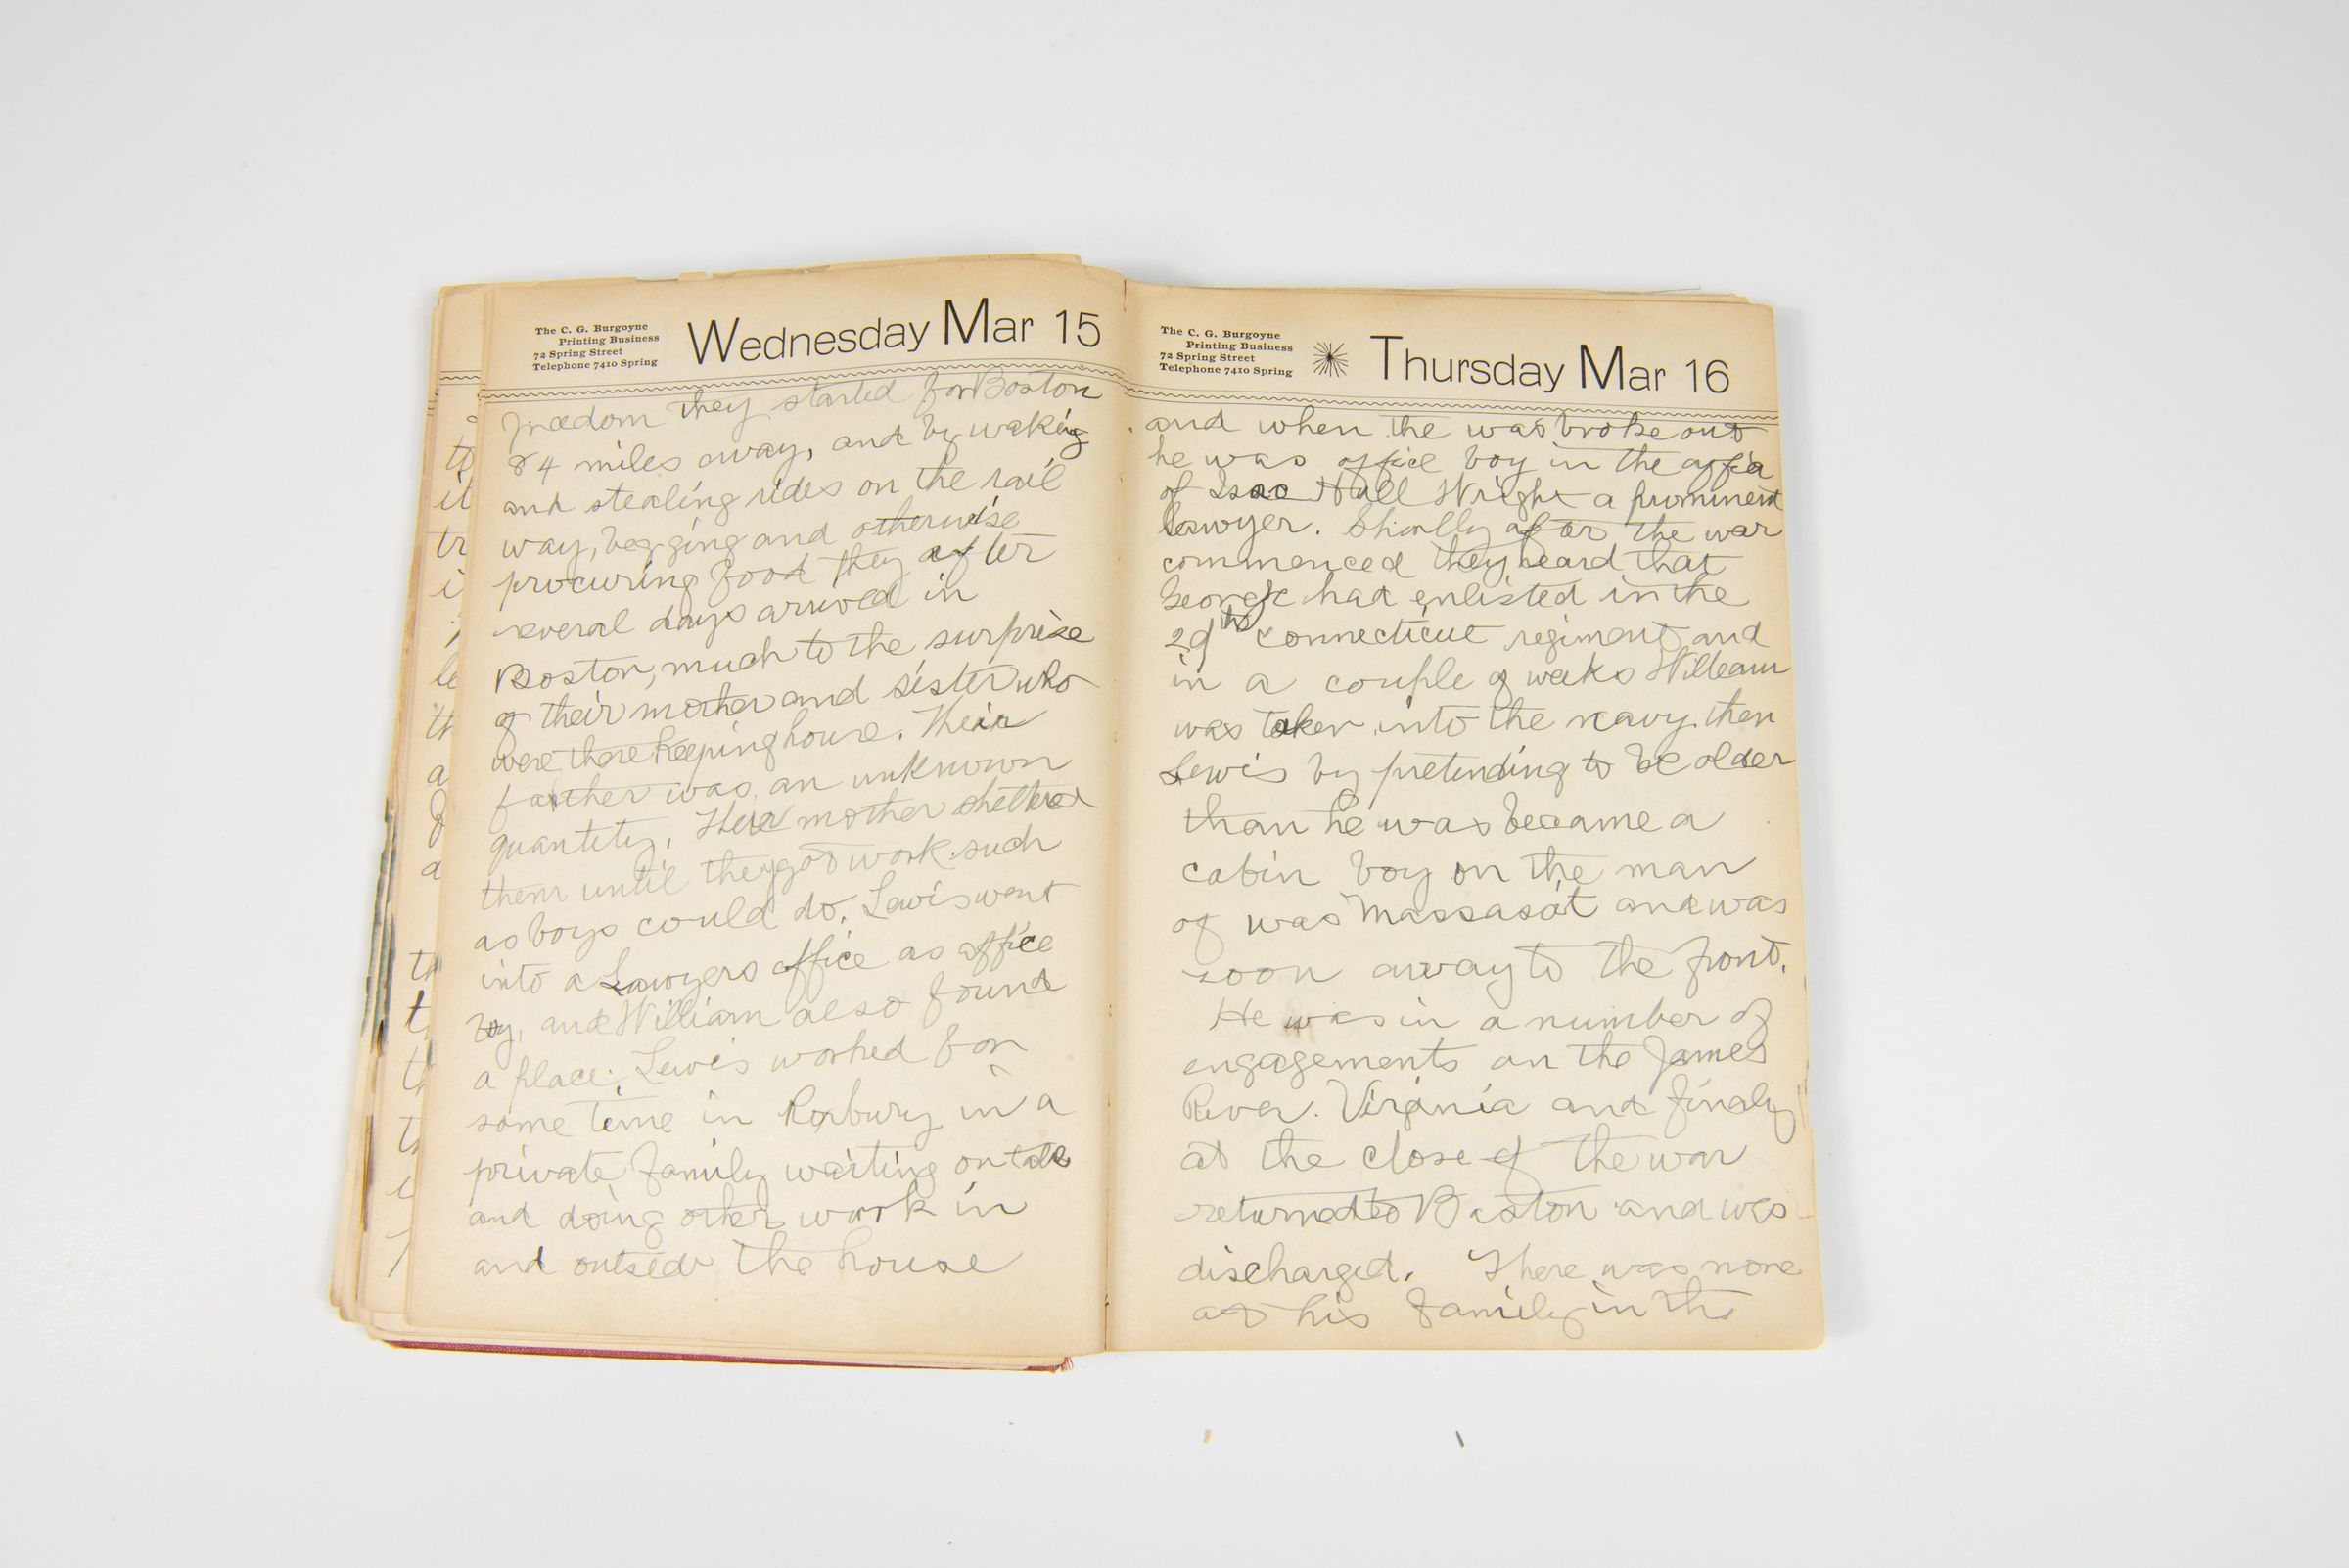 The C. G. Burgoyne
Printing Business
72 Spring Street
Telephone 7410 Spring
Wednesday Mar 15
freedom they started for Boston
84 miles away, and by waking
and stealing rides on the rail
way, begging and otherwise
procuring food they after
several days arrived in
Boston, much to the surprise
of their mother and sister who
were there keeping house. Their
farther was an unknown
quantity. Their mother sheltered
them until they got work such
as boys could do. Lewis went
into a Lawyers office as office
boy, and William also found
a place. Lewis worked for
some time in Roxbury in a
private family waiting on
and doing other work in
and outside the house
The C. G. Burgoyne
Printing Business
72 Spring Street
Telephone 7410 Spring
Thursday Mar 16
and when the was broke out
he was office boy in the office
of Isac Hull Wright a prominent
lawyer. Shortly after the war
commenced they heard that
George had enlisted in the
29th Connecticut regiment and
in a couple of weeks William
was taken into the navy. then
Lewis by pretending to be older
than he was became a
cabin boy on the man
of was Massasoit and was
soon away to the front.
He was in a number of
engagements on the James
River. Virginia and finaly
at the close of the war
returned to Boston and was
discharged. There was none
of his family in the